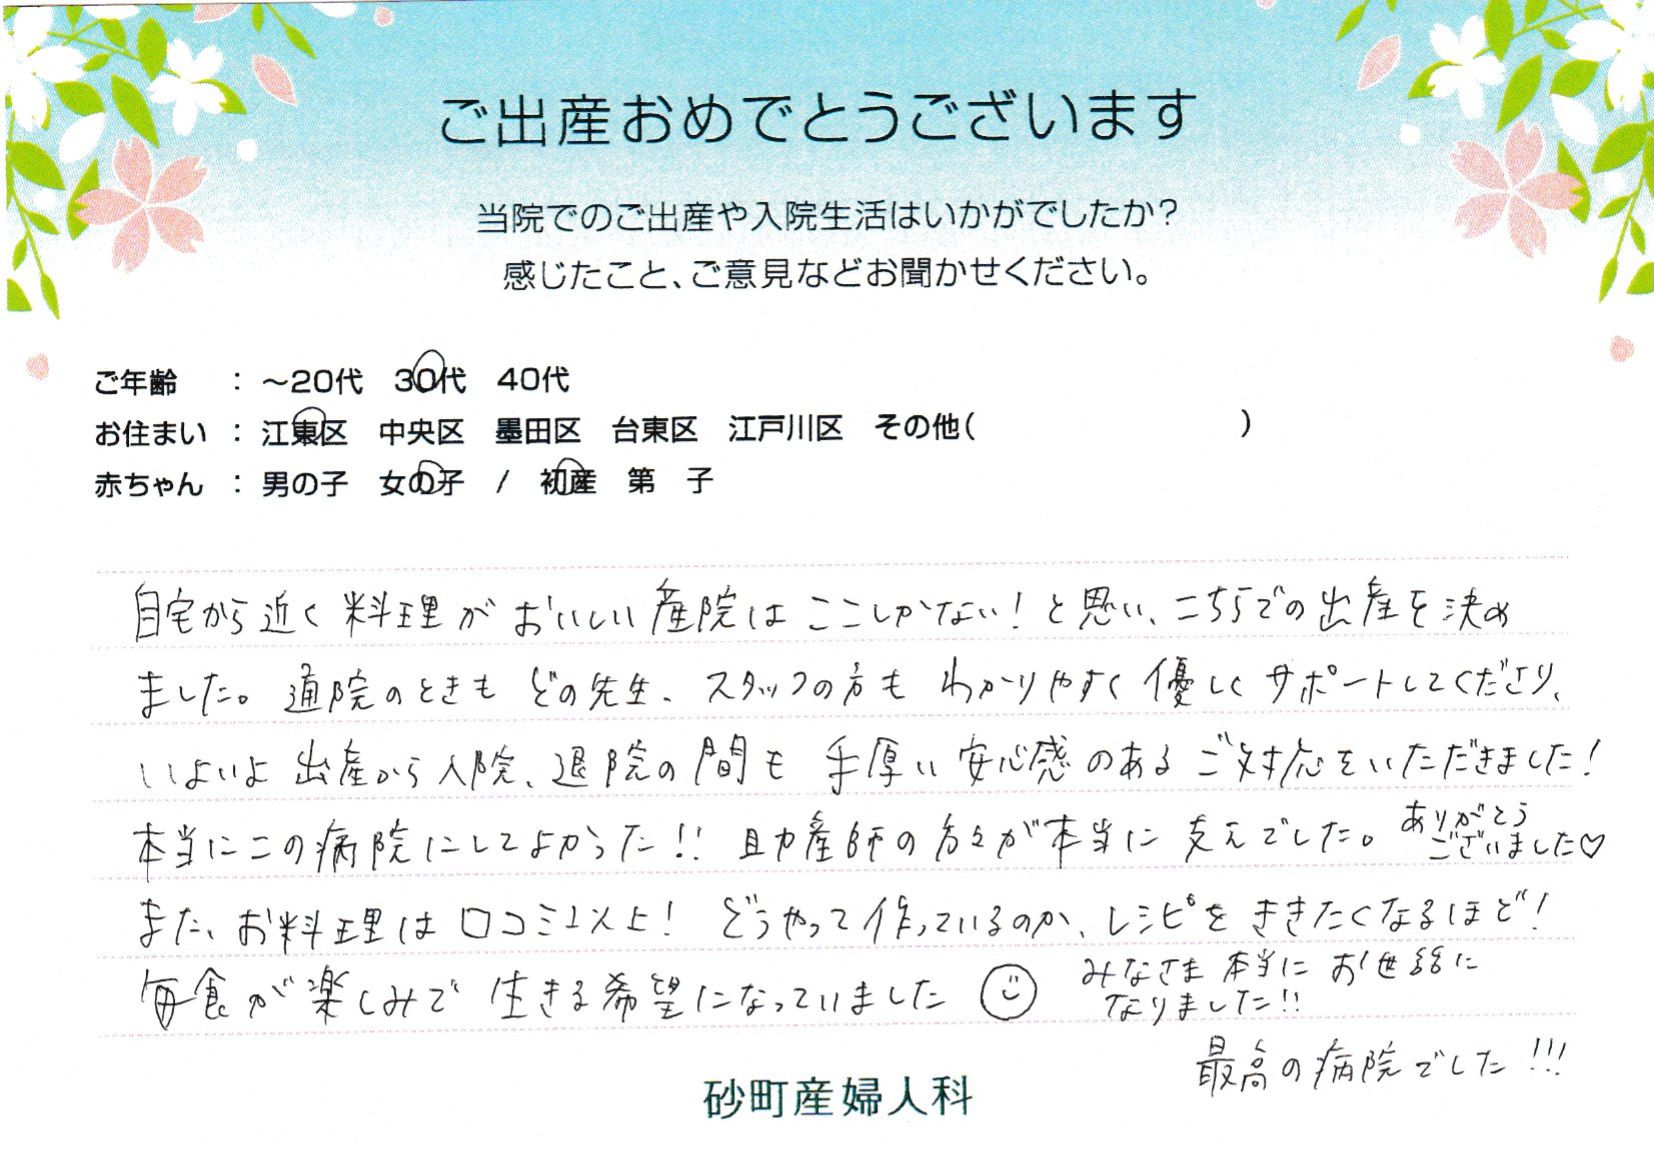 ご出産おめでとうございます
当院でのご出産や入院生活はいかがでしたか?
感じたこと、ご意見などお聞かせください。
ご年齢 : ～20代 30代 40代
お住まい : 江東区 中央区 墨田区 台東区 江戸川区 その他( )
赤ちゃん : 男の子 女の子 / 初産 第 子
自宅から近く料理がおいしい産院はここしかない!と思い、こちらでの出産を決め
ました。通院のときもどの先生、スタッフの方もわかりやすく優しくサポートしてくださり、
いよいよ出産から入院、退院の間も手厚い安心感のあるご対応をいただきました!
本当にこの病院にしてよかった!! 助産師の方々が本当に支えでした。ありがとう
ございました♡
また、お料理は口コミ以上! どうやって作っているのか、レシピをききたくなるほど!
毎食が楽しみで生きる希望になっていました
みなさま本当にお世話に
なりました!!
最高の病院でした!!!
砂町産婦人科